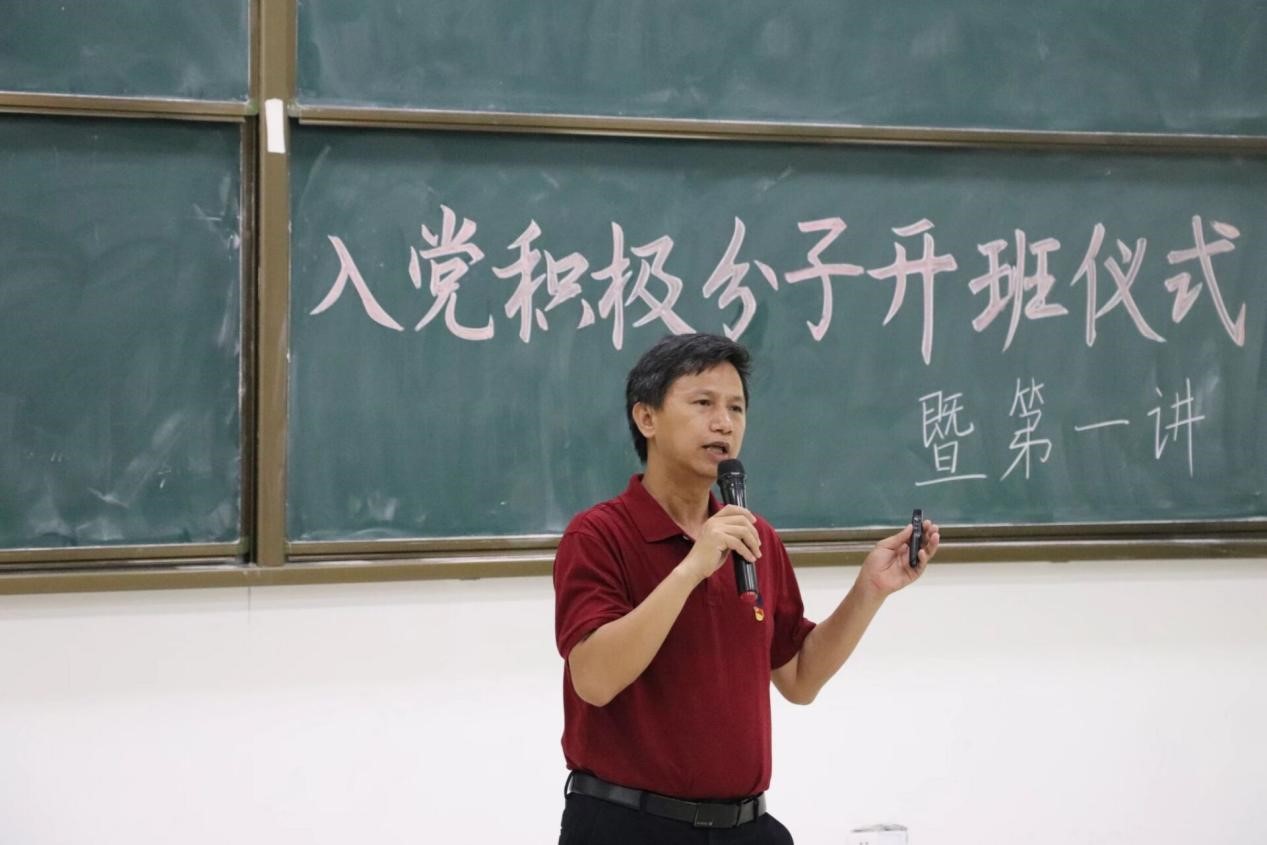 入党积极分子开班仪式
暨第一讲